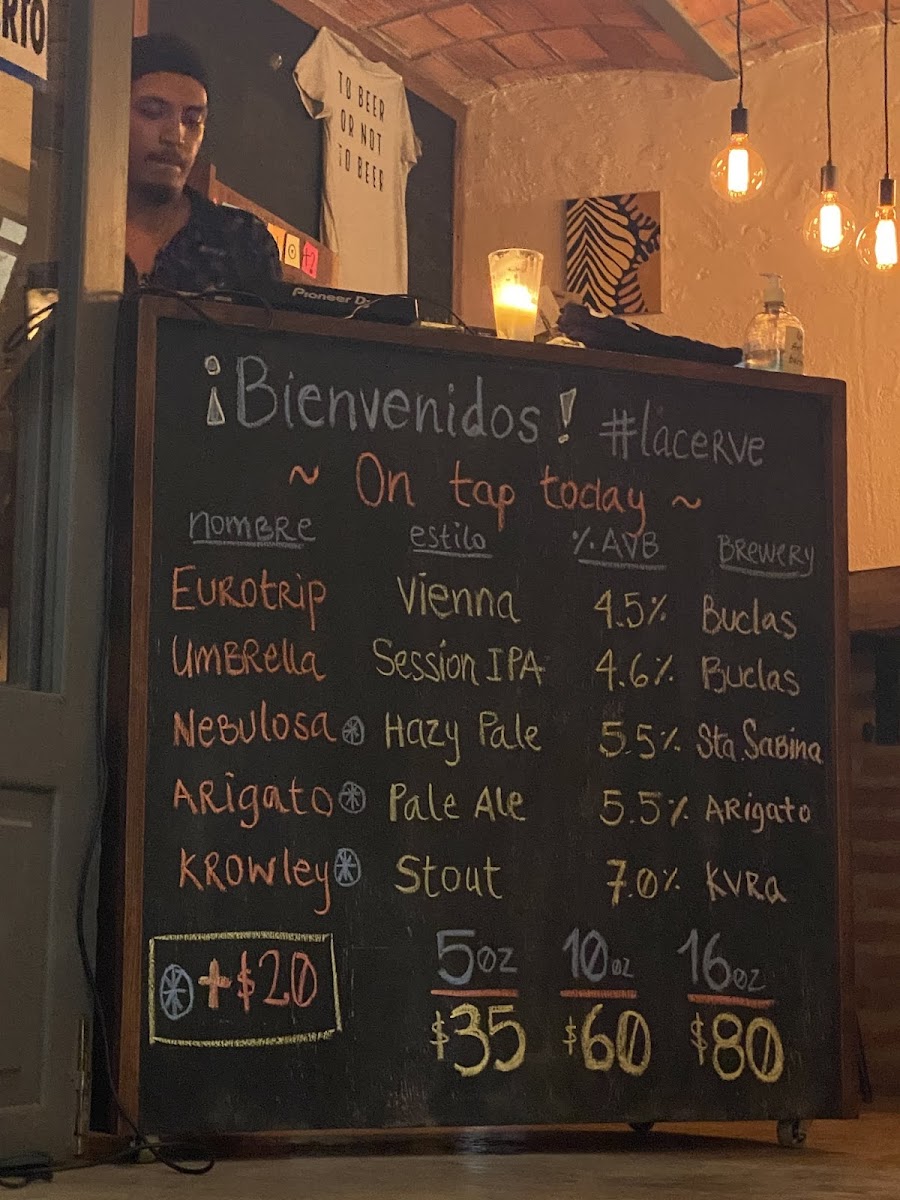 RTO
TO BEER
OR NOT
TO BEER
Pioneer DJ
¡Bienvenidos! #lacerve
~ On tap today ~
nombre estilo %AVB Brewery
Eurotrip Vienna 4.5% Buclas
Umbrella Session IPA 4.6% Buclas
Nebulosa Hazy Pale 5.5% Sta. Sabina
Arigato Pale Ale 5.5% Arigato
Krowley Stout 7.0% KVRA
+$20
5oz 10oz 16oz
$35 $60 $80